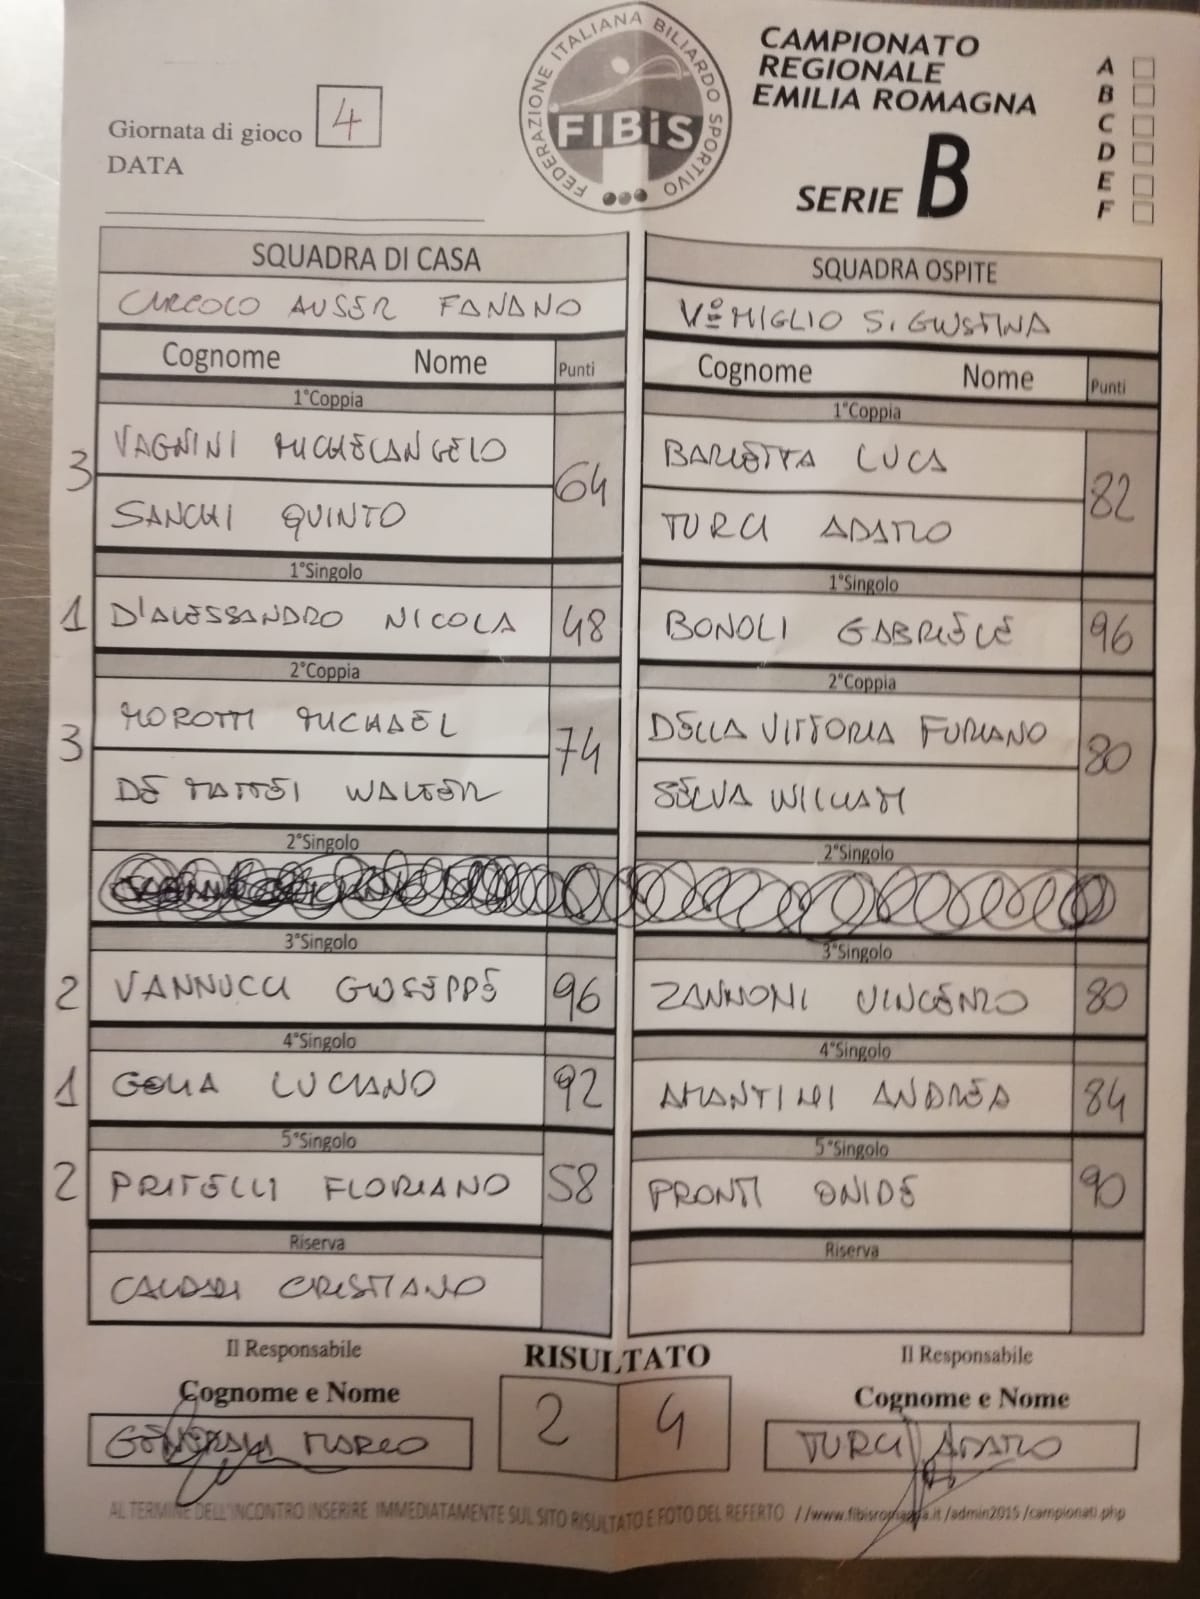 Giornata di gioco 4
DATA
FEDERAZIONE ITALIANA BILIARDO SPORTIVO
FIBiS
CAMPIONATO
REGIONALE
EMILIA ROMAGNA
SERIE B
A
B
C
D
E
F
SQUADRA DI CASA
CIRCOLO AUSER FANANO
Cognome Nome Punti
1°Coppia
3 VAGNINI MICHELANGELO
64
SANCHI QUINTO
1°Singolo
1 D'ALESSANDRO NICOLA 48
2°Coppia
3 MOROTTI MICHAEL
74
DE MATTEI WALTER
2°Singolo
3°Singolo
2 VANNUCCI GIUSEPPE 96
4°Singolo
1 GOLIA LUCIANO 92
5°Singolo
2 PRITELLI FLORIANO 58
Riserva
CALDARI CRISTIANO
SQUADRA OSPITE
V° MIGLIO S. GIUSTINA
Cognome Nome Punti
1°Coppia
BARLETTA LUCA
82
TURCI ADAMO
1°Singolo
BONOLI GABRIELE 96
2°Coppia
DELLA VITTORIA FURIANO
80
SELVA WILLIAM
2°Singolo
3°Singolo
ZANNONI VINCENZO 80
4°Singolo
AMANTINI ANDREA 84
5°Singolo
PRONTI ONIDE 90
Riserva
Il Responsabile
Cognome e Nome
MARCO
RISULTATO
2 4
Il Responsabile
Cognome e Nome
TURCI ADAMO
AL TERMINE DELL'INCONTRO INSERIRE IMMEDIATAMENTE SUL SITO RISULTATO E FOTO DEL REFERTO //www.fibisromagna.it/admin2015/campionati.php